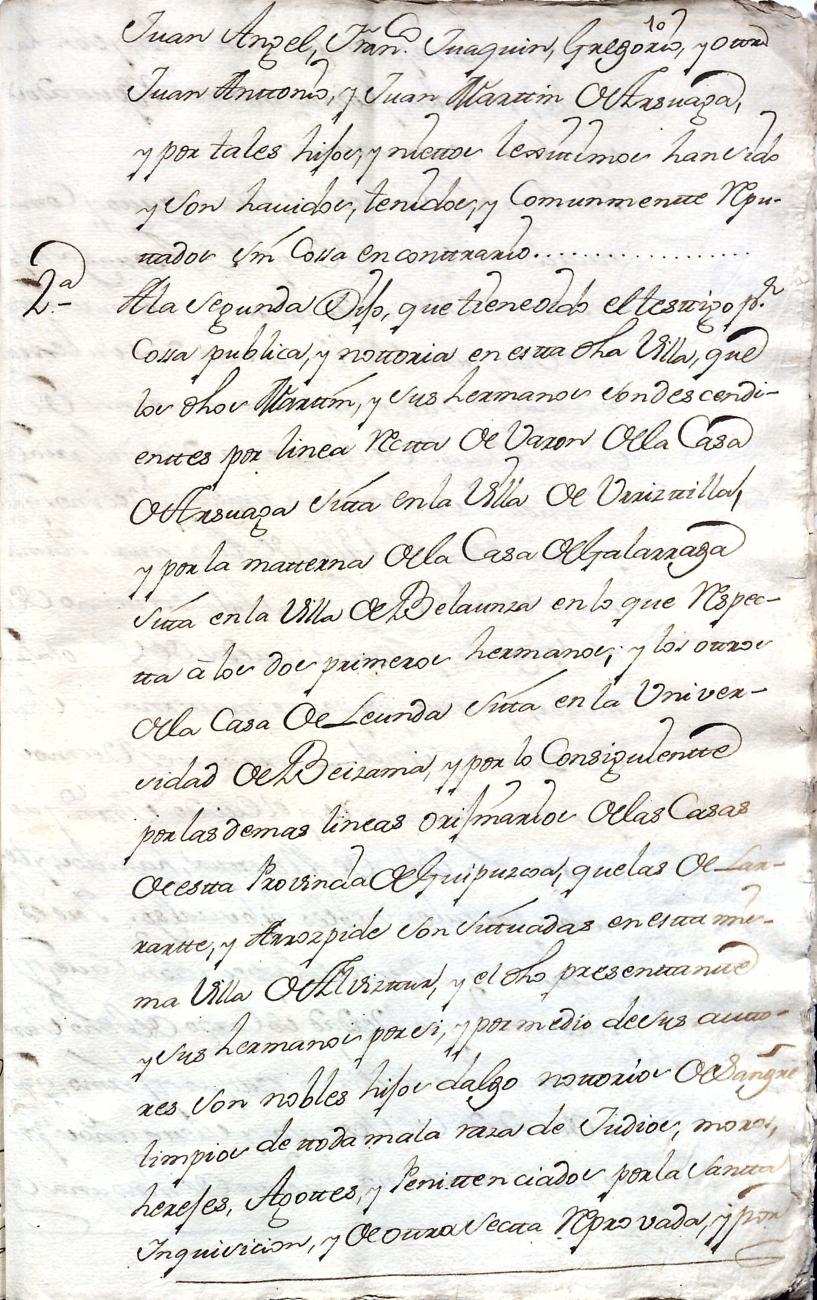 Juan Angel, Fran.co Juaquin, Gregorio, y ottro
Juan Anttonio, y Juan Marttin de Arsuaga,
y por tales hijos, y niettos lexitimos han sido
y son hauidos, tenidos, y Comunmentte Repu-
ttados sin Cossa en conttrario..................
2.a
A la segunda Dijo, que tiene oido el testtigo p.r
Cossa publica, y nottoria en estta dha Villa, que
los dhos Marttin, y sus hermanos son descendi-
enttes por linea Rectta de Varon de la Casa
de Arsuaga sitta en la Villa de Vrrizttilla,
y por la matterna de la Casa de Galarraga
sitta en la Villa de Belaunza en lo que Respec-
tta à los dos primeros hermanos; y los ottros
de la Casa de Leunda sitta en la Univer-
sidad de Beizama, y por lo Consiguientte
por las demas lineas orijinarios de las Casas
de estta Provincia de Guipuzcoa, que las de Lar-
rartte, y Arrozpide son situadas en estta mis-
ma Villa de Alvizttur, y el dho presenttantte
y sus hermanos por si, y por medio de sus autto-
res son nobles hijos dalgo nottorios de Sangre
limpios de ttoda mala raza de Judios, moros,
herejes, Agottes, y Penittenciados por la Santta
Inquisicion, y de ottra sectta Reprovada, y por